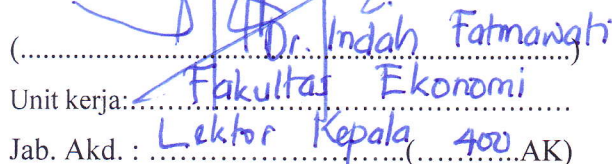 (Dr. Indah Fatmawati)
Unit kerja: Fakultas Ekonomi
Jab. Akd. : Lektor Kepala (400 AK)